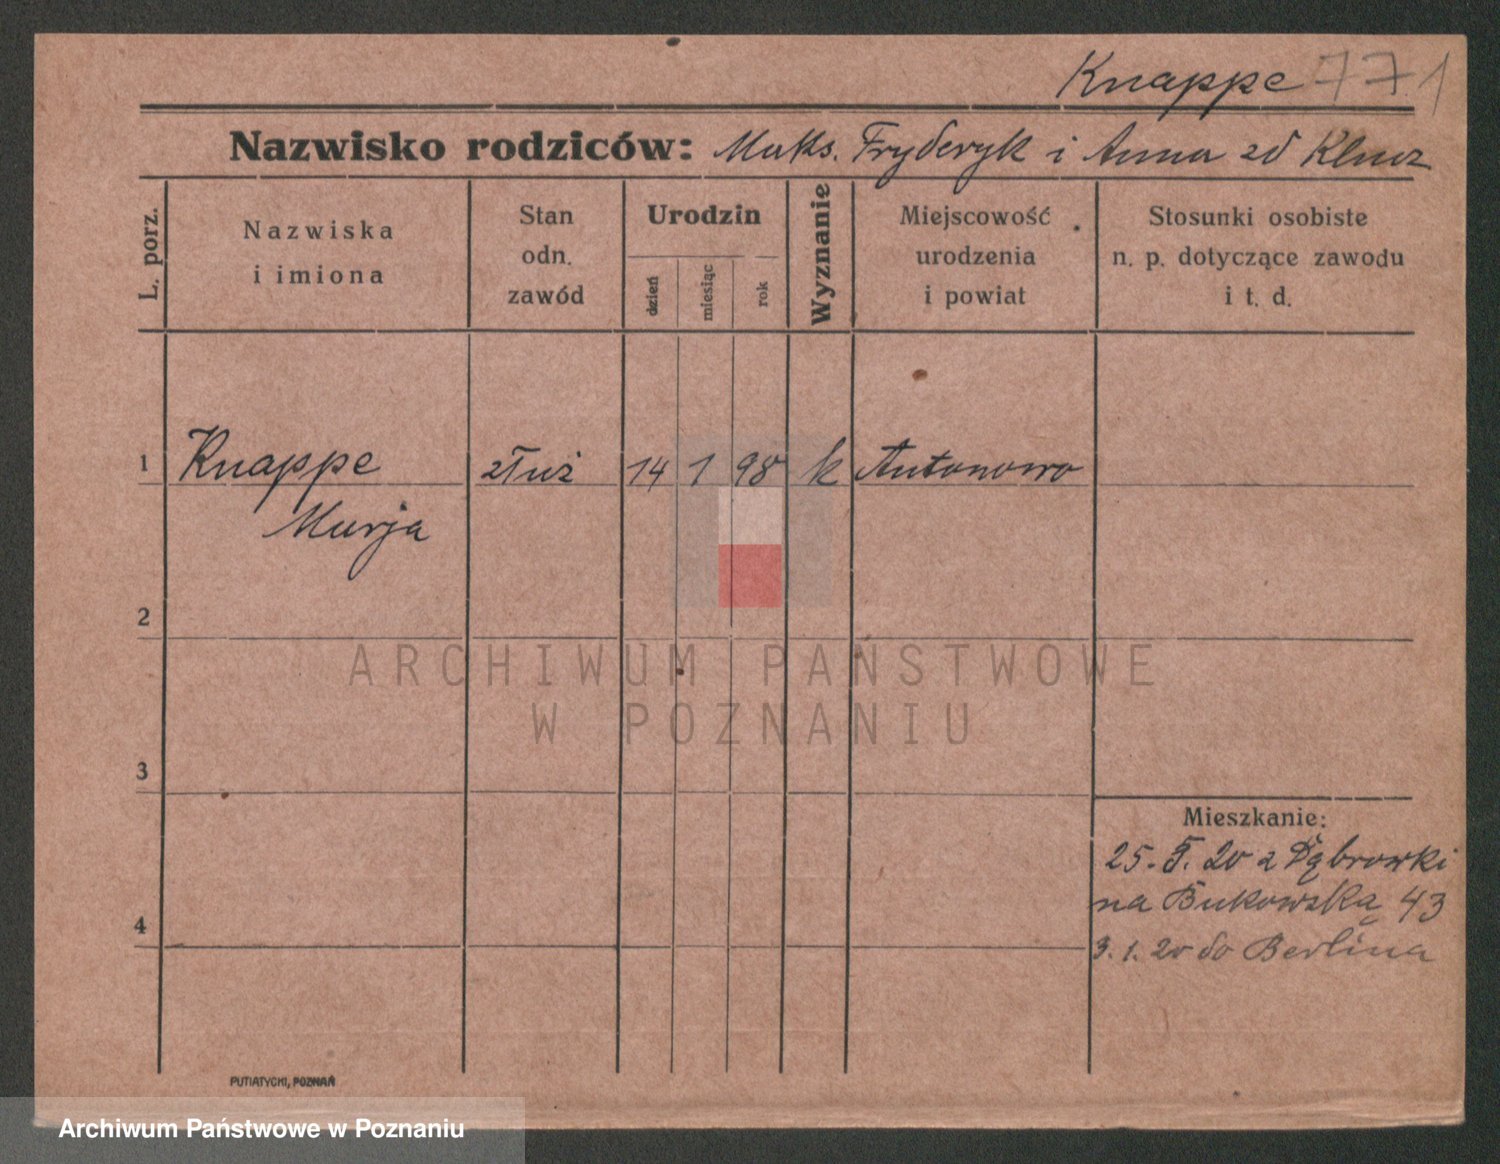 Knappe 771
Nazwisko rodziców: Maks. Fryderyk i Anna zd Klucz
L. porz.
Nazwiska i imiona
Stan odn. zawód
Urodzin
dzień
miesiąc
rok
Wyznanie
Miejscowość urodzenia i powiat
Stosunki osobiste n. p. dotyczące zawodu i t. d.
1 Knappe służ 14 1 98 k Antonowo
Marja
2
ARCHIWUM PAŃSTWOWE
W POZNANIU
3
Mieszkanie:
25. 5. 20 z Dąbrowki
na Bukowską 43
4
3. 1. 20 do Berlina
PUTIATYCKI, POZNAŃ
Archiwum Państwowe w Poznaniu